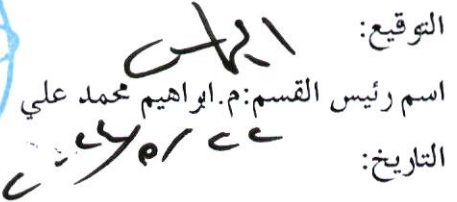 التوقيع:
اسم رئيس القسم:م.ابراهيم محمد علي
التاريخ: